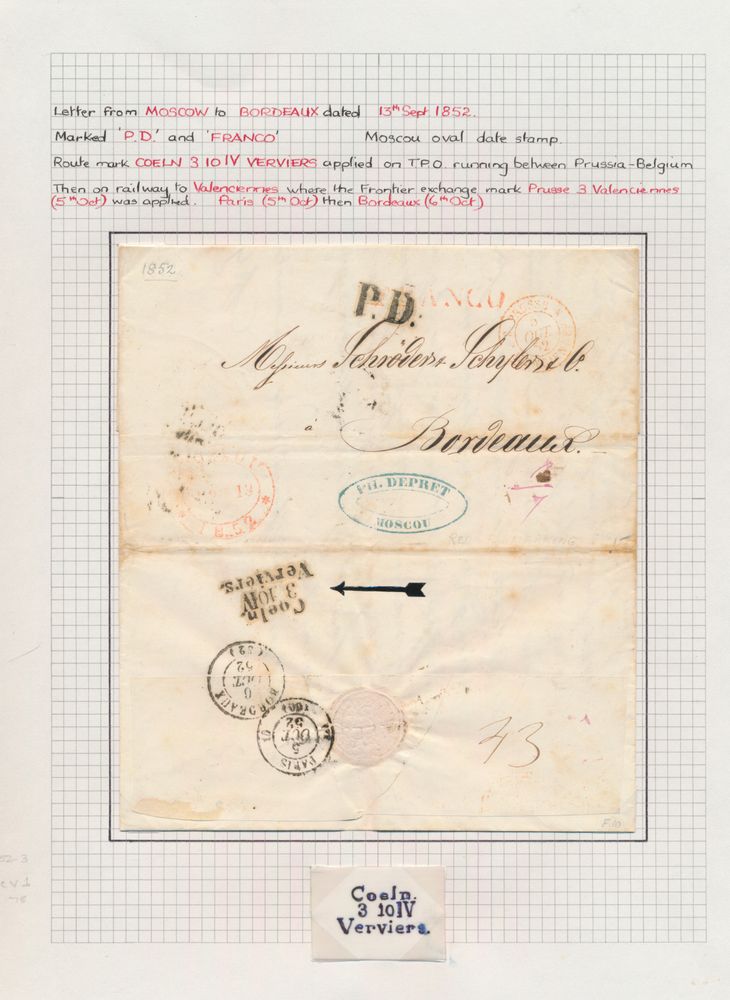 Letter from MOSCOW to BORDEAUX dated 13th Sept 1852.
Marked 'P.D.' and 'FRANCO' Moscou oval date stamp.
Route mark COELN 3 10 IV VERVIERS applied on T.P.O. running between Prussia-Belgium
Then on railway to Valenciennes where the Frontier exchange mark Prusse 3 Valenciennes
(5th Oct) was applied. Paris (5th Oct) then Bordeaux (6th Oct)
1852
P.D. FRANCO
Messieurs Schröder & Schyler & C.
à Bordeaux.
1852
PH. DEPRET
MOSCOU
Coeln
3 10 IV
Verviers.
BORDEAUX
6
OCT.
52
(32)
PARIS
5
OCT.
52
(60)
43
F.10
52-3
Coeln.
3 10 IV
Verviers.